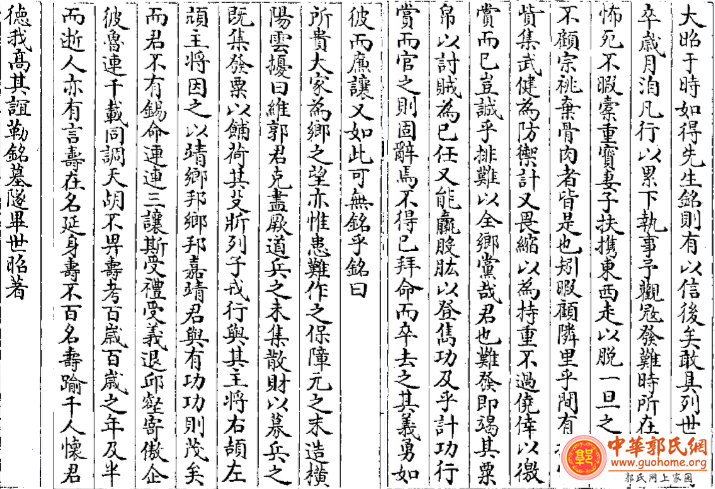 大昭于時如得先生銘則有以信後矣敢具列世
卒歲月洎凡行以累下執事予觀冦發難時所在
怖死不暇橐重寶妻子扶攜東西走以脫一旦之
不顧宗祧棄骨肉者皆是也矧暇顧隣里乎間有
貲集武健為防禦計又畏縮以為持重不過僥倖以徼
賞而已豈誠乎排難以全鄉黨哉君也難發即竭其粟
帛以討賊為已任又能贏股肱以登雋功及乎計功行
賞而官之則固辭焉不得已拜命而卒去之其義勇如
彼而廉讓又如此可無銘乎銘曰
所貴大家為鄉之望亦惟患難作之保障元之末造橫
陽雲擾曰維郭君克盡厥道兵之未集散財以募兵之
既集發粟以餔荷其殳斨列于戎行與其主將右頡左
頏主將因之以靖鄉邦鄉邦嘉靖君與有功功則茂矣
而君不有錫命連連三讓斯受禮受義退邱壑寄傲企
彼魯連千載同調天胡不畀壽考百歲百歲之年及半
而逝人亦有言壽在名延身壽不百名壽踰千人懷君
德我高其誼勒銘墓隧畢世昭著
中華郭氏網
www.guohome.org
郭氏网上家园